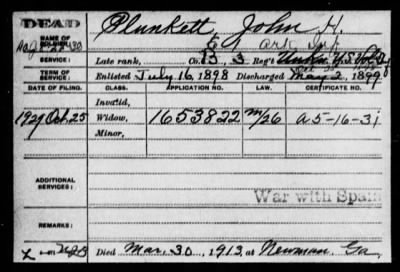 DEAD
NAME OF SOLDIER: Plunkett, John H.
SERVICE: Late rank, Co. B, 3 Reg't U.S. Vol
TERM OF SERVICE: Enlisted July 16, 1898 Discharged May 2, 1899
DATE OF FILING. CLASS. APPLICATION NO. LAW. CERTIFICATE NO.
Invalid,
1929 Oct. 25 Widow, 1653822 m/26 a 5-16-31
Minor,
ADDITIONAL SERVICES:
War with Spain
REMARKS:
Died Mar. 30, 1913, at Newman Ga